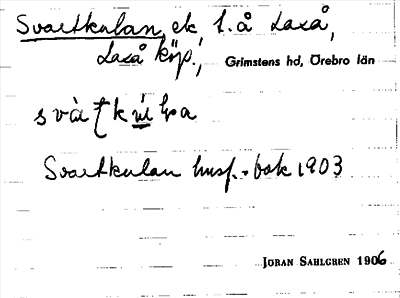 Svartkulan, ek, t. å Laxå,
Laxå köp.,
Grimstens hd, Örebro län
Svartkulan husf.-bok 1903
JÖRAN SAHLGREN 1906